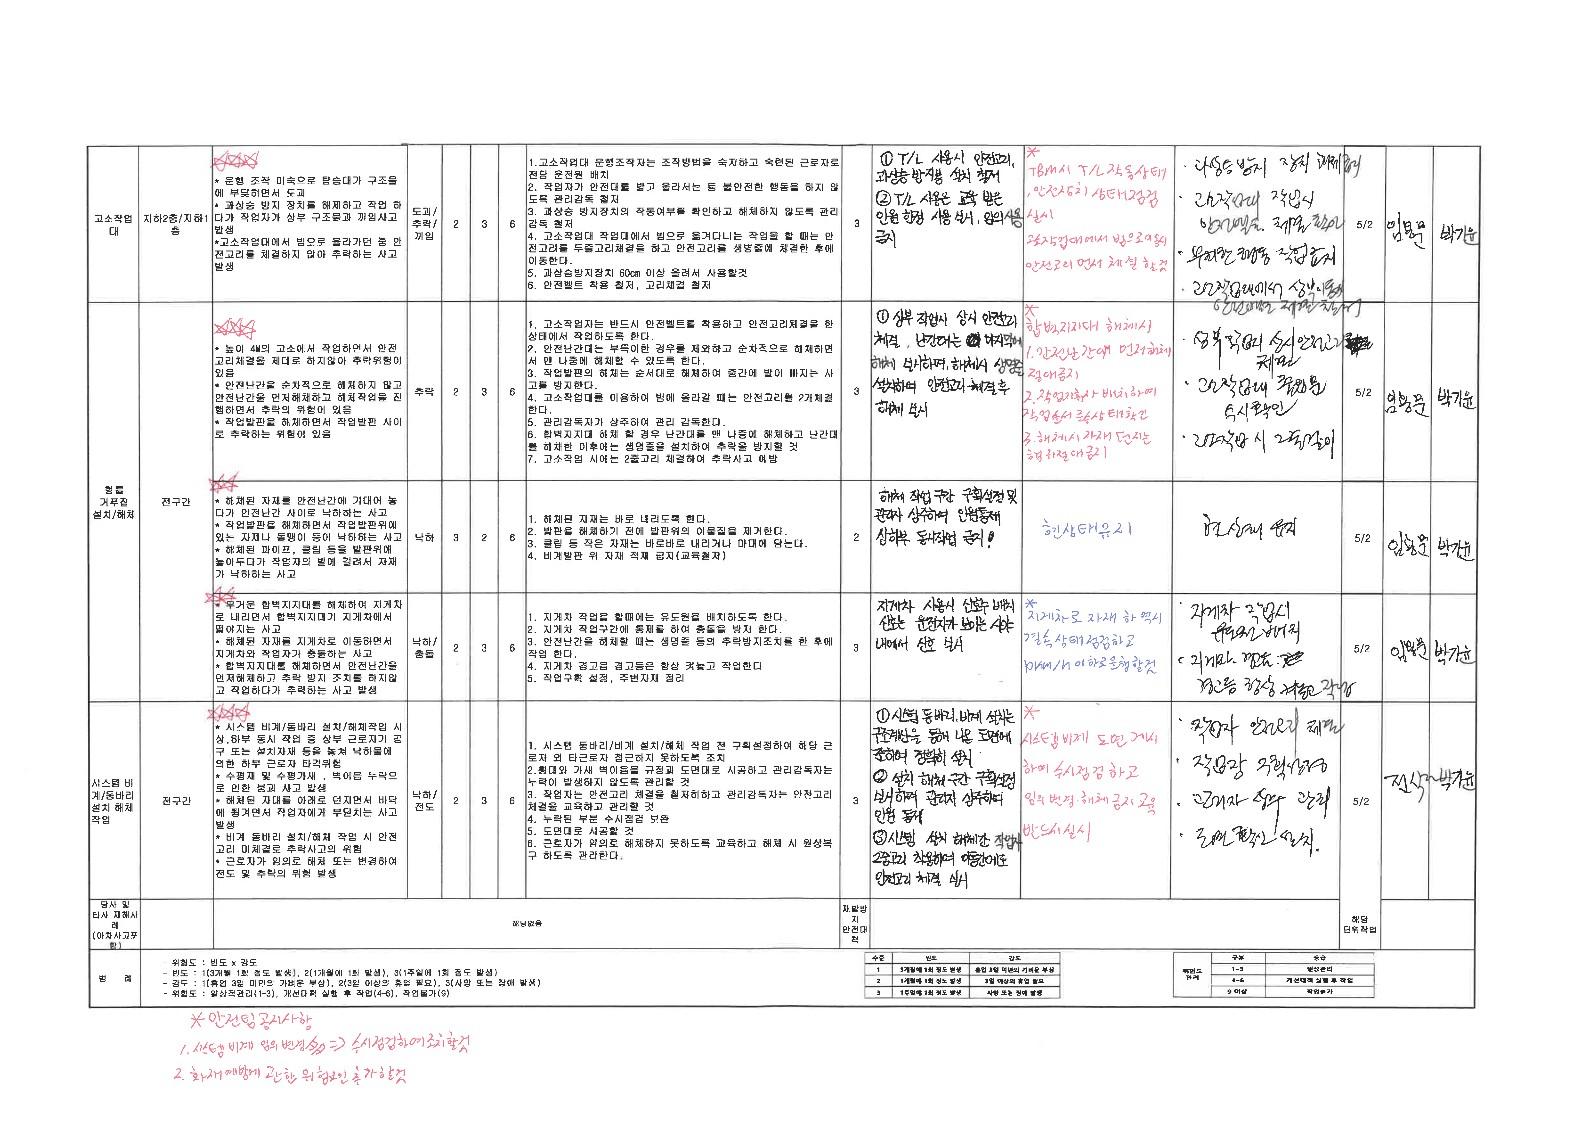 고소작업대
지하2층/지하1층
* 운행 조작 미숙으로 탑승대가 구조물
에 부딪히면서 도괴
* 과상승 방지 장치를 해체하고 작업 하
다가 작업자가 상부 구조물과 끼임사고
발생
*고소작업대에서 빔으로 올라가던 중 안
전고리를 체결하지 않아 추락하는 사고
발생
도괴/
추락/
끼임
2 3 6
1.고소작업대 운행조작자는 조작방법을 숙지하고 숙련된 근로자로
전담 운전원 배치
2. 작업자가 안전대를 밟고 올라서는 등 불안전한 행동을 하지 않
도록 관리감독 철저
3. 과상승 방지장치의 작동여부를 확인하고 해체하지 않도록 관리
감독 철저
4. 고소작업대 작업대에서 빔으로 옮겨다니는 작업을 할 때는 안
전고리를 두줄고리체결을 하고 안전고리를 생명줄에 체결한 후에
이동한다.
5. 과상승방지장치 60cm 이상 올려서 사용할것
6. 안전벨트 착용 철저, 고리체결 철저
3
① T/L 사용시 안전고리,
과상승 방지봉 설치 철저
② T/L 사용은 교육 받은
인원 한정 사용 실시, 임의사용
금지
*
TBM시 T/L 작동상태
, 안전장치 상태점검
실시
고소작업대에서 빔으로 이동시
안전고리 먼저 체결 할것
· 과상승 방지 장치 해체
· 고소작업대 작업시
안전벨트 체결 확인
· 무리한 행동 작업금지
· 고소작업대에서 상부이동시
5/2
임용문
박기윤
형틀
거푸집
설치/해체
전구간
* 높이 4M의 고소에서 작업하면서 안전
고리체결을 제대로 하지않아 추락위험이
있음
* 안전난간을 순차적으로 해체하지 않고
안전난간을 먼저해체하고 해체작업을 진
행하면서 추락의 위험이 있음
* 작업발판을 해체하면서 작업발판 사이
로 추락하는 위험이 있음
추락
2 3 6
1. 고소작업자는 반드시 안전벨트를 착용하고 안전고리체결을 한
상태에서 작업하도록 한다.
2. 안전난간대는 부득이한 경우를 제외하고 순차적으로 해체하면
서 맨 나중에 해체할 수 있도록 한다.
3. 작업발판의 해체는 순서대로 해체하여 중간에 발이 빠지는 사
고를 방지한다.
4. 고소작업대를 이용하여 빔에 올라갈 때는 안전고리를 2개체결
한다.
5. 관리감독자가 상주하여 관리 감독한다.
6. 합벽지지대 해체 할 경우 난간대를 맨 나중에 해체하고 난간대
를 해체한 이후에는 생명줄을 설치하여 추락을 방지할 것
7. 고소작업 시에는 2줄고리 체결하여 추락사고 예방
3
① 상부 작업시 상시 안전고리
체결, 난간대는 마지막에
해체 실시하며, 해체시 생명줄
설치하여 안전고리 체결 후
해체 실시
*
합벽지지대 해체시
1. 안전난간대 먼저해체
절대금지
2. 작업지휘자 배치하여
작업순서 준수상태확인
3. 해체시 자재 던지는
행위절대금지
· 상부 작업시 상시안전고리
체결
· 고소작업대
수시확인
· 고소작업 시 2중걸이
5/2
임용문
박기윤
* 해체된 자재를 안전난간에 기대어 놓
다가 안전난간 사이로 낙하하는 사고
* 작업발판을 해체하면서 작업발판위에
있는 자재나 돌맹이 등이 낙하하는 사고
* 해체된 파이프, 클립 등을 발판위에
놓아두다가 작업자의 발에 걸려서 자재
가 낙하하는 사고
낙하
3 2 6
1. 해체된 자재는 바로 내리도록 한다.
2. 발판을 해체하기 전에 발판위의 이물질을 제거한다.
3. 클립 등 작은 자재는 바로바로 내리거나 마대에 담는다.
4. 비계발판 위 자재 적재 금지(교육철저)
2
해체 작업 구간 구획설정 및
관리자 상주하여 인원통제
상하부 동시작업 금지!
현상태유지
현 상태 유지
5/2
임용문
박기윤
* 무거운 합벽지지대를 해체하여 지게차
로 내리면서 합벽지지대가 지게차에서
떨어지는 사고
* 해체된 자재를 지게차로 이동하면서
지게차와 작업자가 충돌하는 사고
* 합벽지지대를 해체하면서 안전난간을
먼저해체하고 추락 방지 조치를 하지않
고 작업하다가 추력하는 사고 발생
낙하/
충돌
2 3 6
1. 지게차 작업을 할때에는 유도원을 배치하도록 한다.
2. 지게차 작업구간에 통제를 하여 충돌을 방지 한다.
3. 안전난간을 해체할 때는 생명줄 등의 추락방지조치를 한 후에
작업 한다.
4. 지게차 경고음 경고등은 항상 켜놓고 작업한다
5. 작업구획 설정, 주변자재 정리
3
지게차 사용시 신호수 배치
신호는 운전자가 보이는 시야
내에서 신호 실시
*
지게차로 자재 하역시
결속상태점검하고
이하로운행할것
· 지게차 작업시
유도원 배치
· 지게차 경고음
경고등 항상 켜놓고 작업
5/2
임용문
박기윤
시스템 비
계/동바리
설치 해체
작업
전구간
* 시스템 비계/동바리 설치/해체작업 시
상,하부 동시 작업 중 상부 근로자가 공
구 또는 설치자재 등을 놓쳐 낙하물에
의한 하부 근로자 타격위험
* 수평재 및 수평가새 , 벽이음 누락으
로 인한 붕괴 사고 발생
* 해체된 자대를 아래로 던지면서 바닥
에 튕겨면서 작업자에게 부딪치는 사고
발생
* 비계 동바리 설치/해체 작업 시 안전
고리 미체결로 추락사고의 위험
* 근로자가 임의로 해체 또는 변경하여
전도 및 추락의 위험 발생
낙하/
전도
2 3 6
1. 시스템 동바리/비계 설치/해체 작업 전 구획설정하여 해당 근
로자 외 타근로자 접근하지 못하도록 조치
2.횡대와 가새 벽이음을 규정과 도면대로 시공하고 관리감독자는
누락이 발생하지 않도록 관리할 것
3. 작업자는 안전고리 체결을 철저히하고 관리감독자는 안전고리
체결을 교육하고 관리할 것
4. 누락된 부분 수시점검 보완
5. 도면대로 시공할 것
6. 근로자가 임의로 해체하지 못하도록 교육하고 해체 시 원상복
구 하도록 관리한다.
3
① 시스템 동바리, 비계 설치는
구조계산을 통해 나온 도면에
준하여 정확히 설치
② 설치 해체 구간 구획설정
실시하며 관리자 상주하여
인원 통제
③ 시스템 설치 해체간 작업자
2중고리 착용하며 이동간에도
안전고리 체결 실시
*
시스템비계 도면 게시
하여 수시점검 하고
임의변경·해체 금지 교육
반드시실시
· 작업자 안전고리 체결
· 작업장 구획설정
· 근로자 관리
· 도면 확인 설치.
5/2
박기윤
당사 및
타사 재해사
례
(아차사고포
함)
해당없음
재발방
지
안전대
책
해당
단위작업
범 례
- 위험도 : 빈도 x 강도
- 빈도 : 1(3개월에 1회 정도 발생), 2(1개월에 1회 발생), 3(1주일에 1회 정도 발생)
- 강도 : 1(휴업 3일 미만의 가벼운 부상), 2(3일 이상의 휴업 필요), 3(사망 또는 장애 발생)
- 위험도 : 일상적관리(1-3), 개선대책 실행 후 작업(4-6), 작업불가(9)
수준 빈도 강도
1 3개월에 1회 정도 발생 휴업 3일 미만의 가벼운 부상
2 1개월에 1회 정도 발생 3일 이상의 휴업 필요
3 1주일에 1회 정도 발생 사망 또는 장애 발생
위험도
관계
구분 등급
1-3 일상관리
4-6 개선대책 실행 후 작업
9 이상 작업불가
* 안전팀공지사항
1. 시스템 비계 임의 변경 => 수시점검하여조치할것
2. 화재예방에 관한 위험요인 추가할것